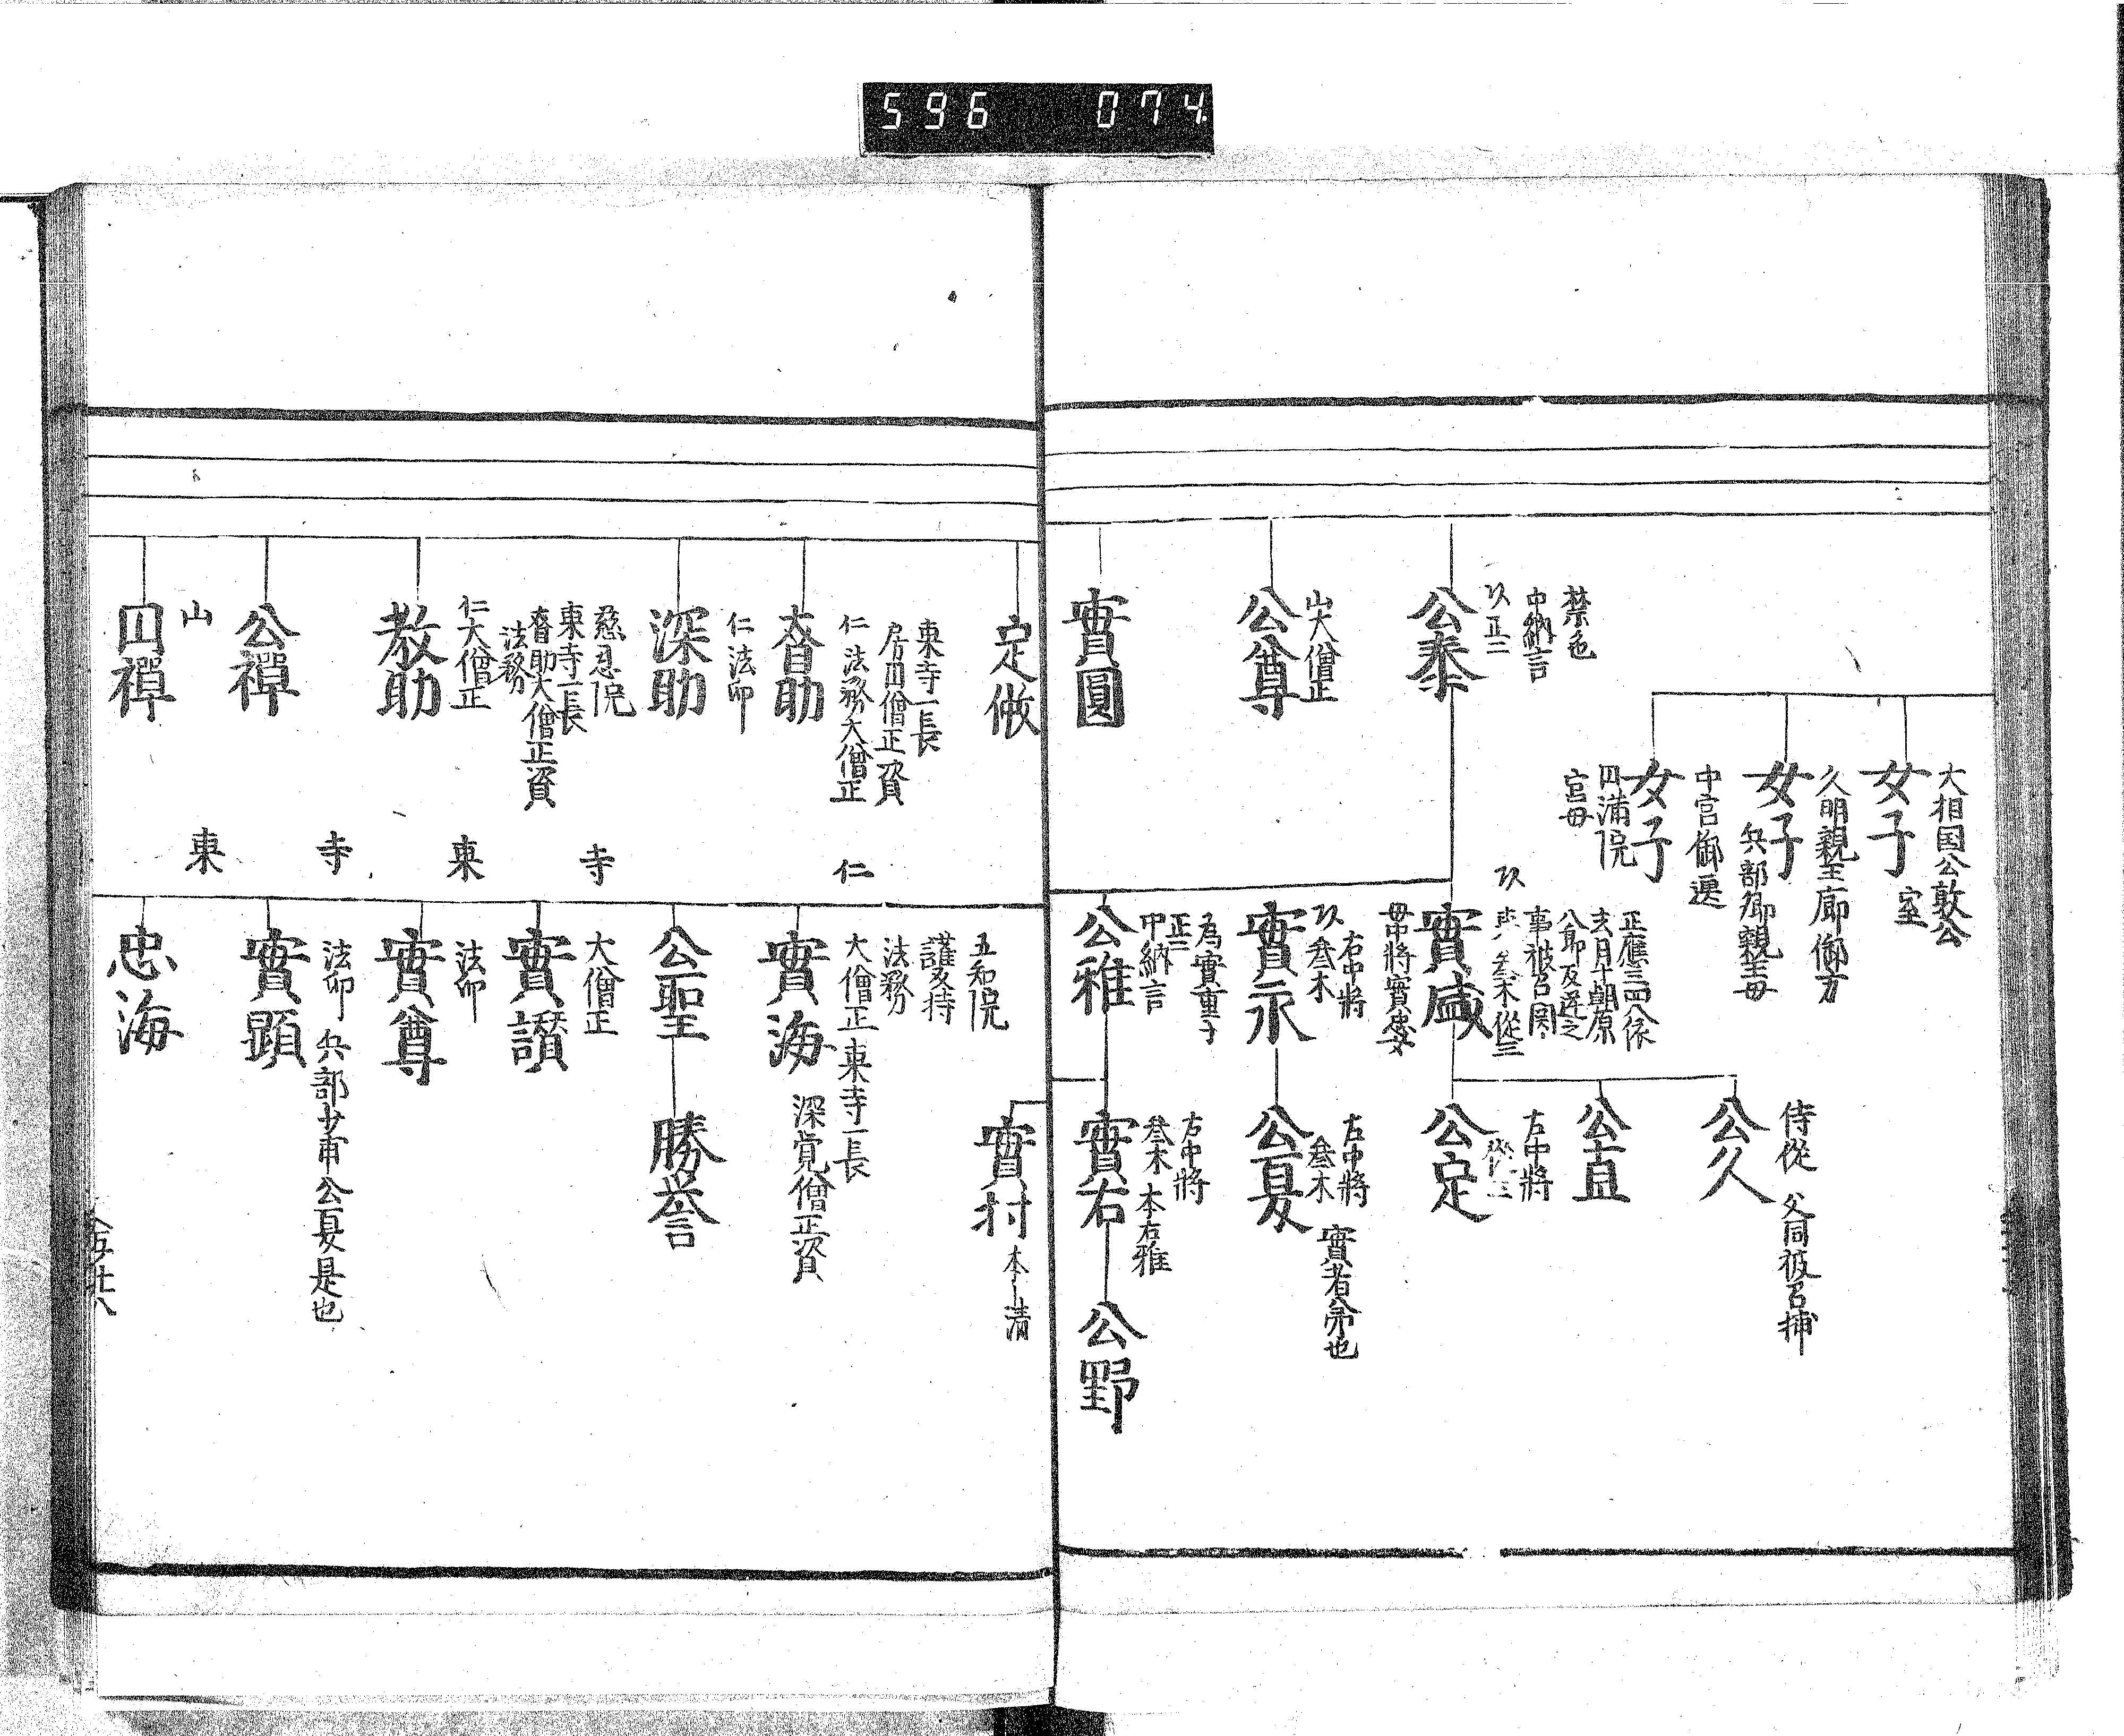 596 074
大相国公敦公
室
女子
久明親王廊御方
兵部卿親王母
女子
中宮御匣
女子
円満院
宮母
禁色
中納言
正二
公泰
山大僧正
公尊
實圓
正應三四八依
去月十朝原
八郎反逆之
事被召関
參木從三
實盛
母中將實忠女
右中將
參木
實永
為實重子
正二
中納言
公雅
侍從 父同被召捕
公久
公直
左中將
從三
公定
左中將
參木 實者弟也
公夏
右中將
參木 本右雅
實右
公野
定倣
東寺一長
房円僧正資
仁 法務大僧正
奝助
仁法印
深助
慈忍院
東寺一長
奝助大僧正資
法務
仁大僧正
教助
公禅
山
円禅
實村
本清
五知院
護持
法務
仁
大僧正東寺一長
深覚僧正資
實海
公聖
勝誉
寺
大僧正
實讃
東
法印
實尊
寺
法印 兵部少甫公夏是也
實顕
東
忠海